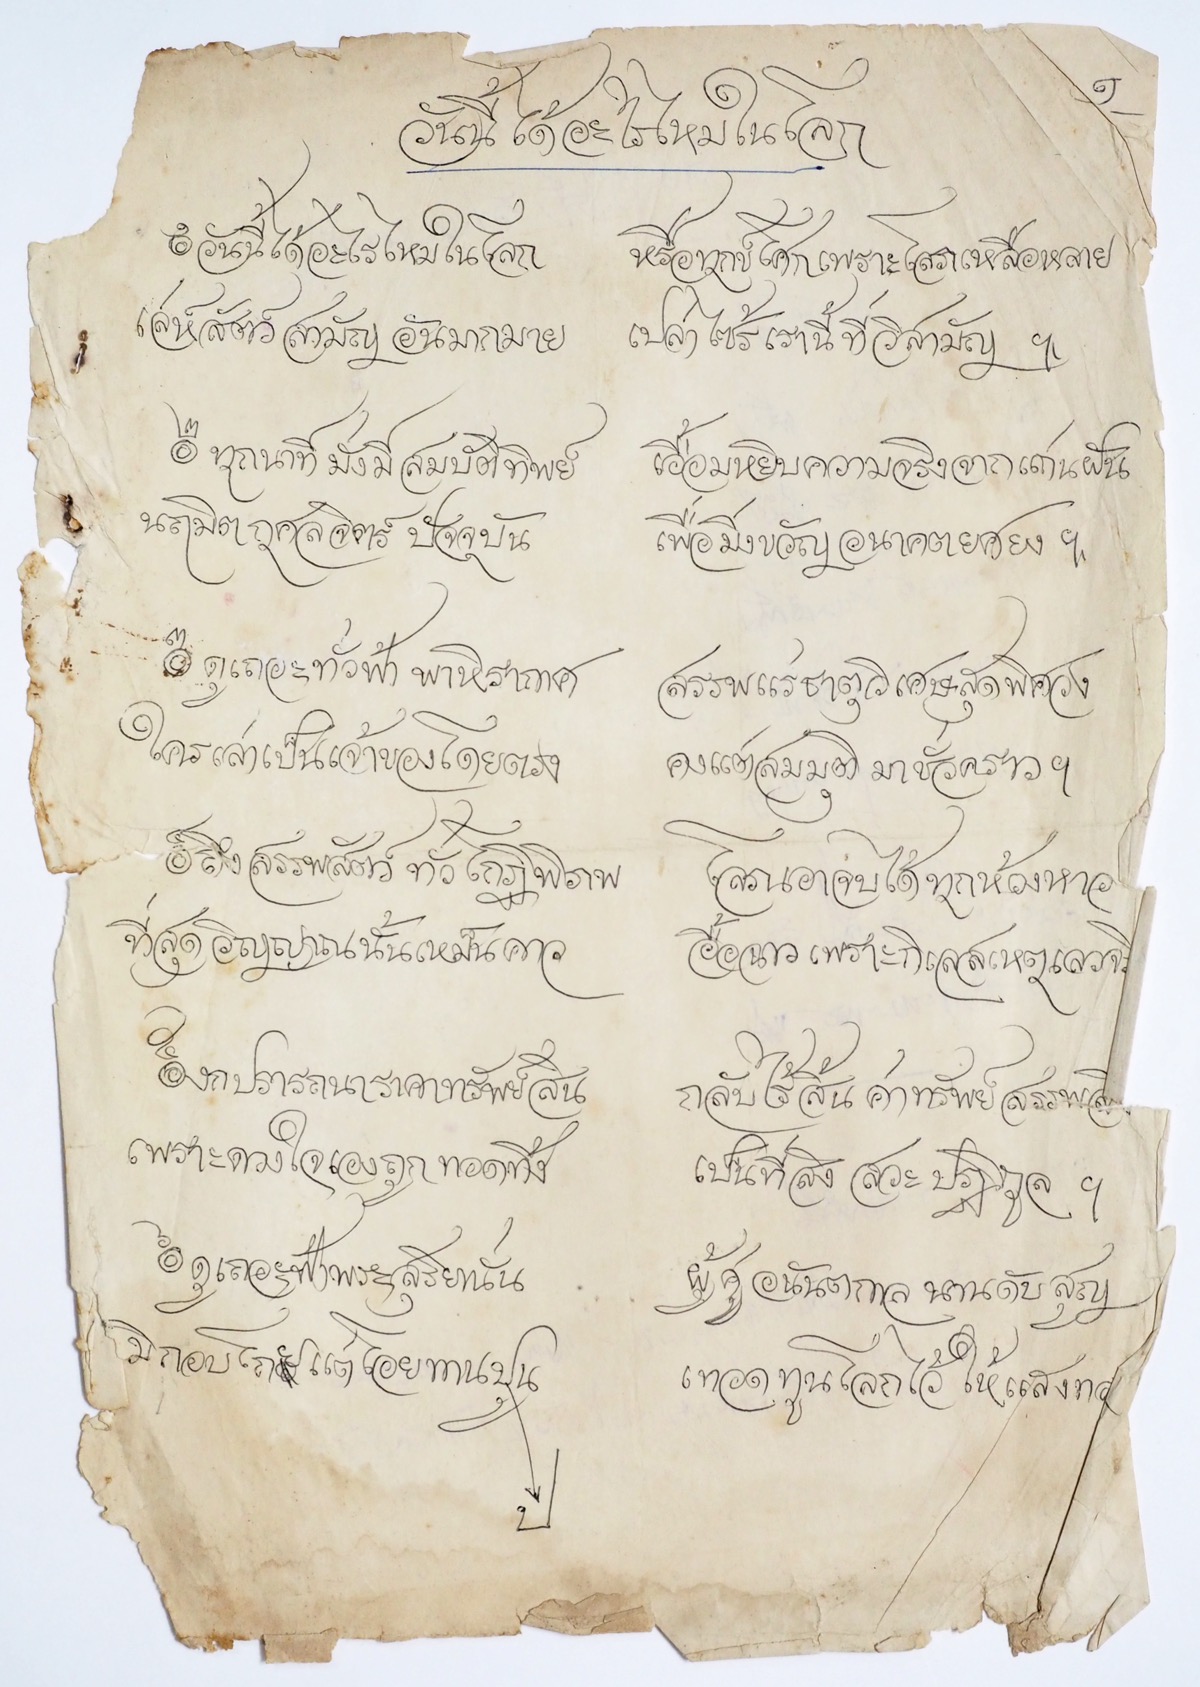 ๑
วันนี้ได้อะไรไหมในโลก
๑ วันนี้ได้อะไรไหมในโลก หรือทุกข์โศกเพราะโสภาเหลือหลาย
เล่ห์สัตว์สามัญ อันมากมาย เปล่าไซร้เรานี้ที่วิสามัญ ฯ
๒ ทุกนาทีมั่งมีสมบัติทิพย์ เอื้อมหยิบความจริงจากแก่นฝัน
นฤมิตกุศลจิตร์ ปัจจุบัน เพื่อมิ่งขวัญอนาคตาย ฯ
๓ ดูเถอะทั่วฟ้า พาหิรากาศ สรรพแร่ธาตุวิเศษสุดพิศวง
ใครเล่าเป็นเจ้าของโดยตรง คงแต่สมมุติ มาชั่วคราว ฯ
๔ ถึงสรรพสัตว์ ทั่วโกฏิพิภพ โสณอาจบได้ทุกห้วงหาว
ที่สุดวิญญาณนั้นเหม็นคาว อื้อฉาวเพราะกิเลสเหตุ
๕ งกปรารถนาราคาทรัพย์สิน กลับไร้สิ้นค่าทรัพย์
เพราะดวงใจเองถูกทอดทิ้ง เป็นที่สิง สวะ ปฏิกูล ฯ
๖ ดูเถอะฟ้าพระสุริยนั่น ผู้อนันตกาล นานดับสูญ
มิกอบโกยแต่โอยทานปุน เทอดทูนโลกไว้ให้แสง
ปู